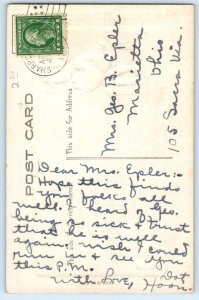 POST CARD
This side for Address
Mrs. Geo. B. Epler
Marietta
Ohio
105 Sacra Via.
Dear Mrs. Epler:-
Hope this finds
you folks all
well. I heard of Geo.
being sick & trust
he is well
again. wish I could
run in & see you
this P.M.
With Love,
Dot